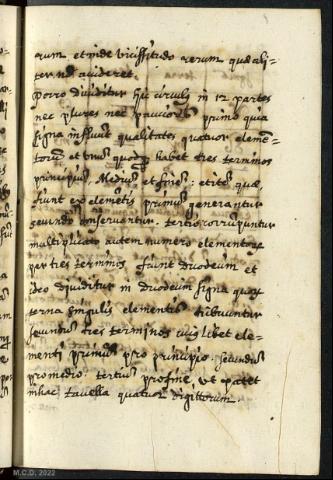 rum et inde vicissitudo rerum quæ ali-
ter nō avideret.
Porro dividitur hic circulꝰ in 12 partes
nec plures nec pauciores primo quia
signa influunt qualitates quatuor elemē-
torū et unūquodqꝫ habet tres terminos
principiū, Mediū, et finē: et itē quæ
sunt ex elemētis primū generantur
secundo conservantur, tertio corrūpuntur
multiplicato autem numero elementorꝝ
per tres terminos sunt duodecim et
ideo dividitur in duodecim signa quorꝝ
terna singulis elementis tribuuntur
secundū tres terminos cuiuslibet ele-
menti primū pro principio: secundū
pro medio: tertiū pro fine, ut patet
in hac tavella quatuor digittorum.
M.C.D. 2022